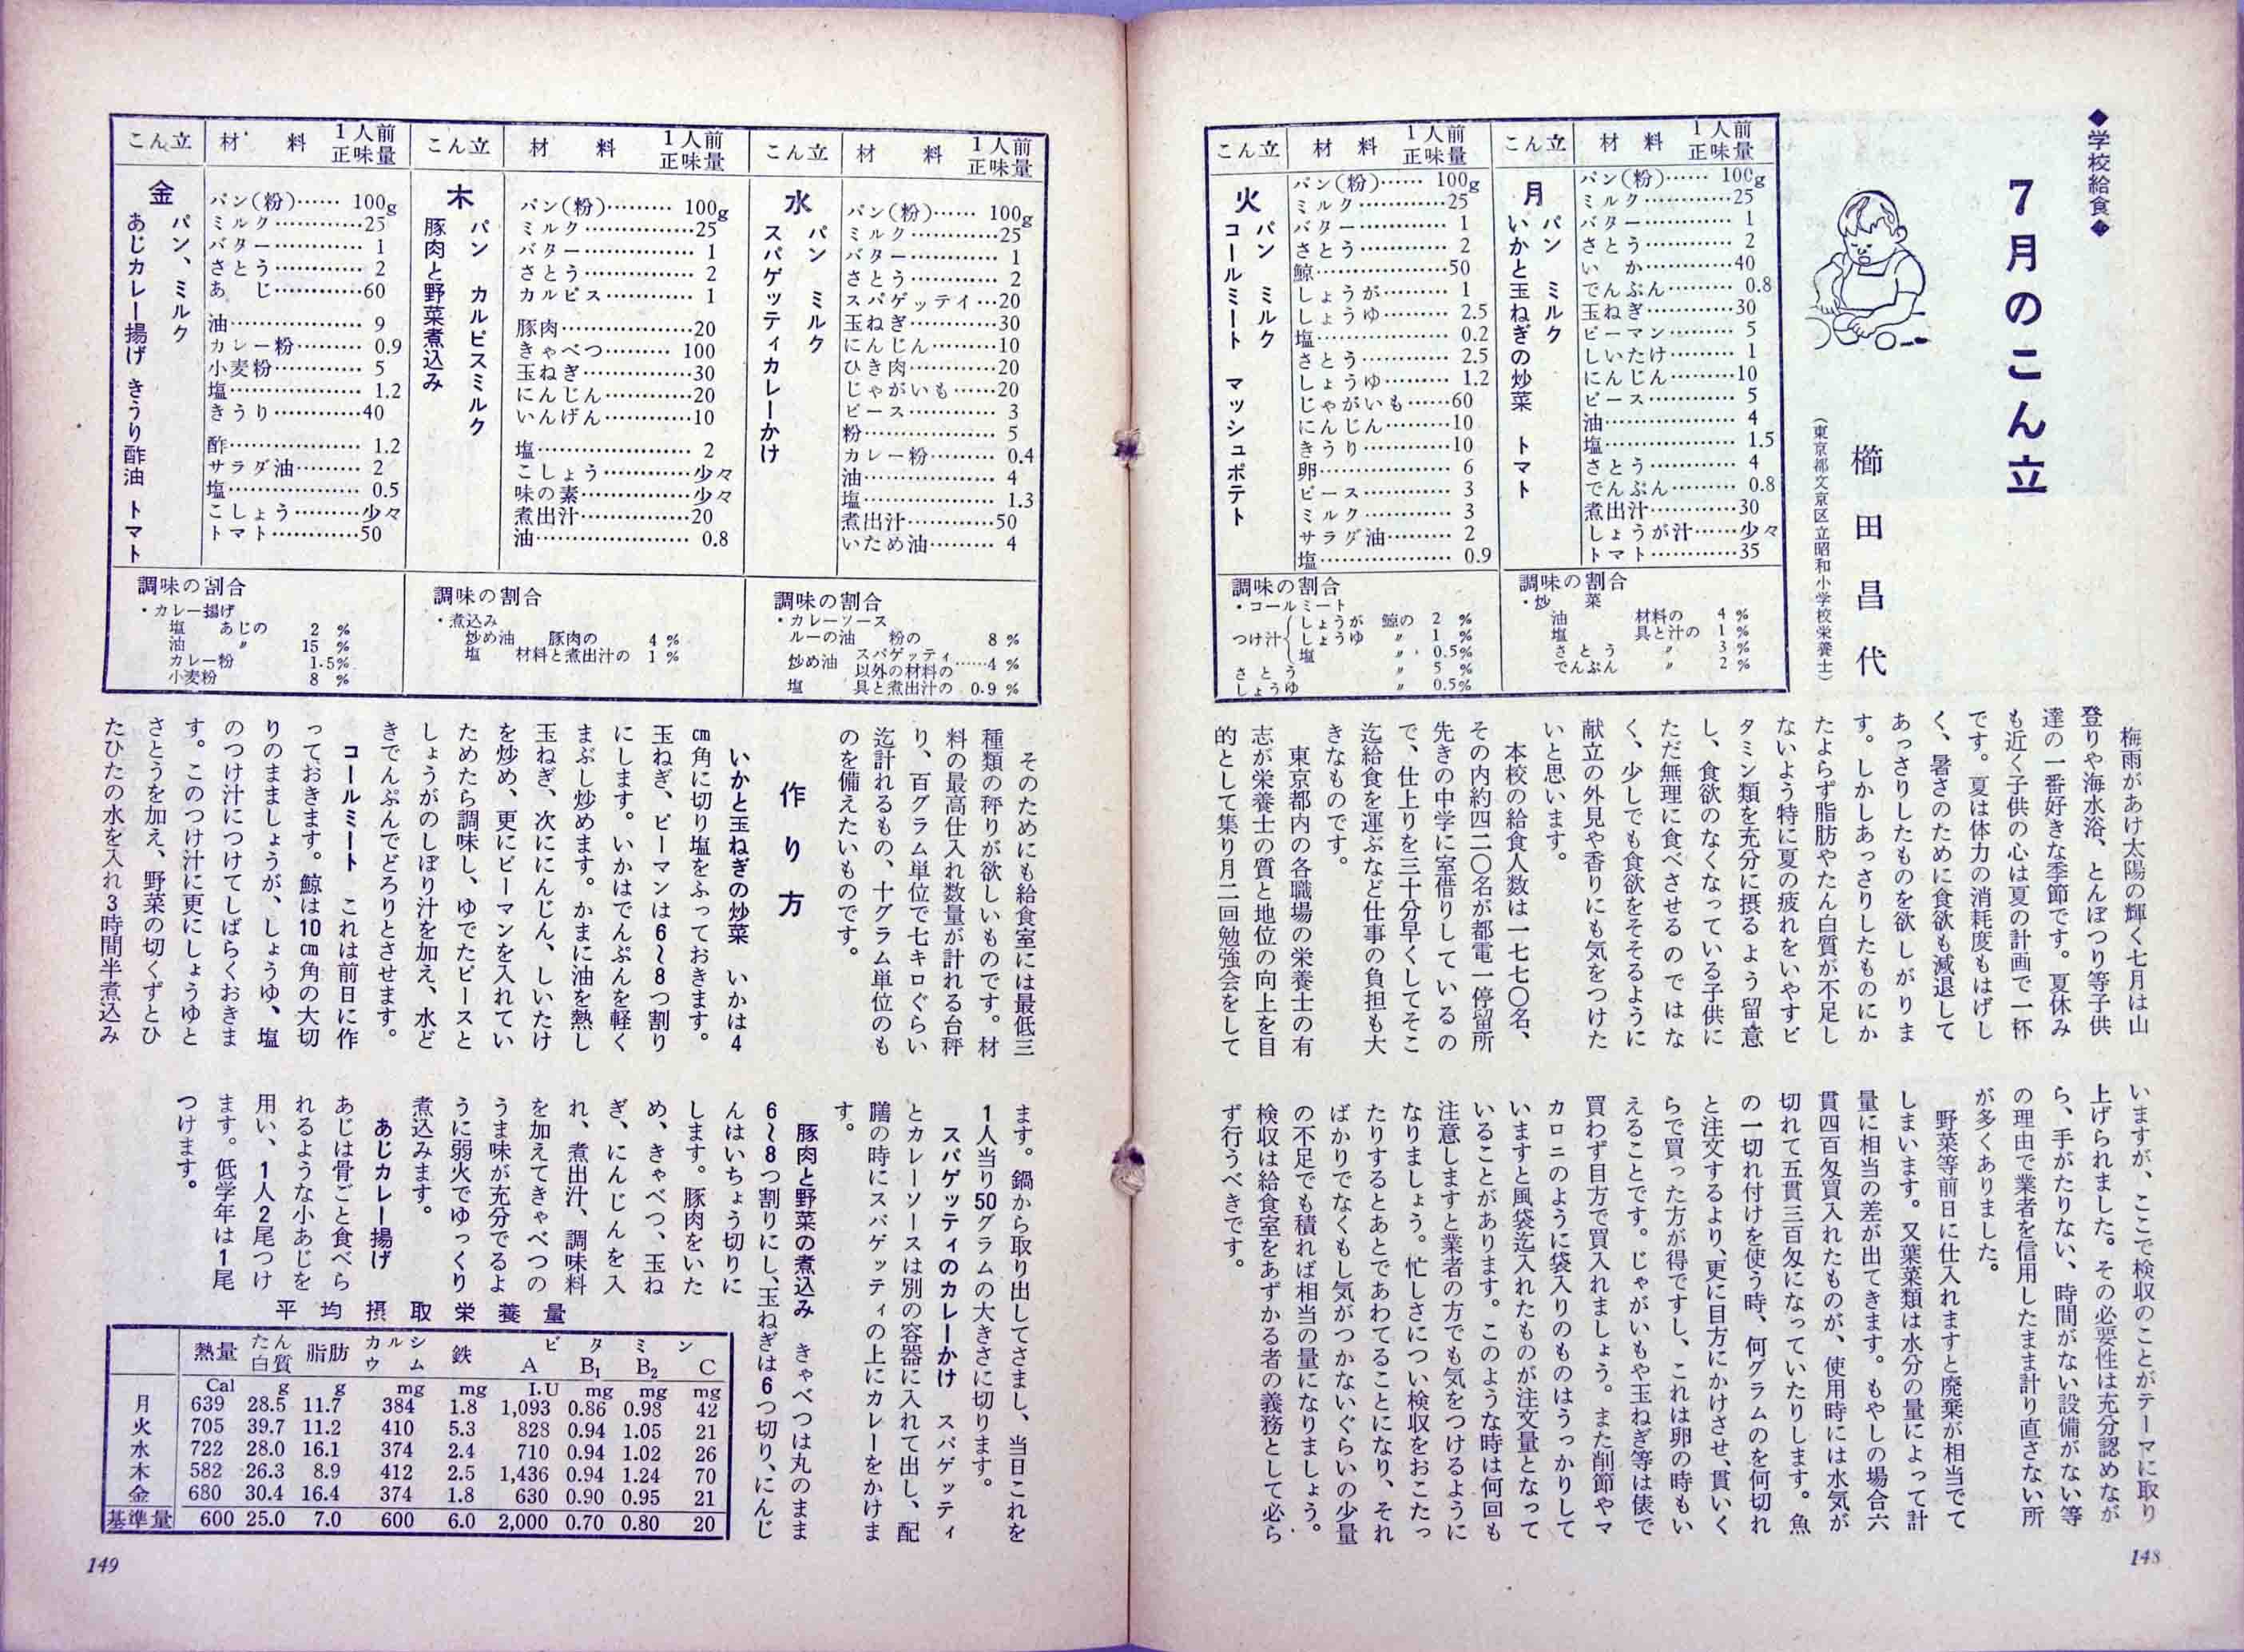 ◆学校給食◆
7月のこん立
櫛田昌代
(東京都文京区立昭和小学校栄養士)
こん立 材料 1人前正味量
月
パン ミルク
いかと玉ねぎの炒菜 トマト
パン(粉)…… 100g
ミルク…………25
バター………… 1
さとう………… 2
いか…………40
でんぷん……… 0.8
玉ねぎ…………30
ピーマン……… 5
しいたけ……… 1
にんじん………10
ピース………… 5
油……………… 4
塩……………… 1.5
さとう………… 4
でんぷん……… 0.8
煮出汁…………30
しょうが汁……少々
トマト…………35
調味の割合
・炒菜
油 材料の 4 %
塩 具と汁の 1 %
さとう 〃 3 %
でんぷん 〃 2 %
こん立 材料 1人前正味量
火
パン ミルク
コールミート マッシュポテト
パン(粉)…… 100g
ミルク…………25
バター………… 1
さとう………… 2
鯨………………50
しょうが……… 1
しょうゆ……… 2.5
塩……………… 0.2
さとう………… 2.5
しょうゆ……… 1.2
じゃがいも……60
にんじん………10
きうり…………10
卵……………… 6
ピース………… 3
ミルク………… 3
サラダ油……… 2
塩……………… 0.9
調味の割合
・コールミート
つけ汁
しょうが 鯨の 2 %
しょうゆ 〃 1 %
塩 〃 0.5%
さとう 〃 5 %
しょうゆ 〃 0.5%
梅雨があけ太陽の輝く七月は山
登りや海水浴、とんぼつり等子供
達の一番好きな季節です。夏休み
も近く子供の心は夏の計画で一杯
です。夏は体力の消耗度もはげし
く、暑さのために食欲も減退して
あっさりしたものを欲しがりま
す。しかしあっさりしたものにか
たよらず脂肪やたん白質が不足し
ないよう特に夏の疲れをいやすビ
タミン類を充分に摂るよう留意
し、食欲のなくなっている子供に
ただ無理に食べさせるのではな
く、少しでも食欲をそそるように
献立の外見や香りにも気をつけた
いと思います。
本校の給食人数は一七七〇名、
その内約四二〇名が都電一停留所
先きの中学に室借りしているの
で、仕上りを三十分早くしてそこ
迄給食を運ぶなど仕事の負担も大
きなものです。
東京都内の各職場の栄養士の有
志が栄養士の質と地位の向上を目
的として集り月二回勉強会をして
いますが、ここで検収のことがテーマに取り
上げられました。その必要性は充分認めなが
ら、手がたりない、時間がない設備がない等
の理由で業者を信用したまま計り直さない所
が多くありました。
野菜等前日に仕入れますと廃棄が相当でて
しまいます。又葉菜類は水分の量によって計
量に相当の差が出てきます。もやしの場合六
貫四百匁買入れたものが、使用時には水気が
切れて五貫三百匁になっていたりします。魚
の一切れ付けを使う時、何グラムのを何切れ
と注文するより、更に目方にかけさせ、貫いく
らで買った方が得ですし、これは卵の時もい
えることです。じゃがいもや玉ねぎ等は俵で
買わず目方で買入れましょう。また削節やマ
カロニのように袋入りのものはうっかりして
いますと風袋迄入れたものが注文量となって
いることがあります。このような時は何回も
注意しますと業者の方でも気をつけるように
なりましょう。忙しさについ検収をおこたっ
たりするとあとであわてることになり、それ
ばかりでなくもし気がつかないぐらいの少量
の不足でも積れば相当の量になりましょう。
検収は給食室をあずかる者の義務として必ら
ず行うべきです。
148
こん立 材料 1人前正味量
水
パン ミルク
スパゲッティカレーかけ
パン(粉)…… 100g
ミルク…………25
バター………… 1
さとう………… 2
スパゲッテイ…20
玉ねぎ…………30
にんじん………10
ひき肉…………20
じゃがいも……20
ピース………… 3
粉……………… 5
カレー粉……… 0.4
油……………… 4
塩……………… 1.3
煮出汁…………50
いため油……… 4
調味の割合
・カレーソース
ルーの油 粉の 8 %
炒め油 スパゲッティ以外の材料の……4 %
塩 具と煮出汁の 0.9 %
こん立 材料 1人前正味量
木
パン カルピスミルク
豚肉と野菜煮込み
パン(粉)……… 100g
ミルク……………25
バター…………… 1
さとう…………… 2
カルピス………… 1
豚肉………………20
きゃべつ……… 100
玉ねぎ……………30
にんじん…………20
いんげん…………10
塩………………… 2
こしょう…………少々
味の素……………少々
煮出汁……………20
油………………… 0.8
調味の割合
・煮込み
炒め油 豚肉の 4 %
塩 材料と煮出汁の 1 %
こん立 材料 1人前正味量
金
パン、ミルク
あじカレー揚げ きうり酢油 トマト
パン(粉)…… 100g
ミルク…………25
バター………… 1
さとう………… 2
あじ…………60
油……………… 9
カレー粉……… 0.9
小麦粉………… 5
塩……………… 1.2
きうり…………40
酢……………… 1.2
サラダ油……… 2
塩……………… 0.5
こしょう………少々
トマト…………50
調味の割合
・カレー揚げ
塩 あじの 2 %
油 〃 15 %
カレー粉 1.5%
小麦粉 8 %
そのためにも給食室には最低三
種類の秤りが欲しいものです。材
料の最高仕入れ数量が計れる台秤
り、百グラム単位で七キロぐらい
迄計れるもの、十グラム単位のも
のを備えたいものです。
作り方
いかと玉ねぎの炒菜 いかは4
cm角に切り塩をふっておきます。
玉ねぎ、ピーマンは6〜8つ割り
にします。いかはでんぷんを軽く
まぶし炒めます。かまに油を熱し
玉ねぎ、次ににんじん、しいたけ
を炒め、更にピーマンを入れてい
ためたら調味し、ゆでたピースと
しょうがのしぼり汁を加え、水ど
きでんぷんでどろりとさせます。
コールミート これは前日に作
っておきます。鯨は10cm角の大切
りのまましょうが、しょうゆ、塩
のつけ汁につけてしばらくおきま
す。このつけ汁に更にしょうゆと
さとうを加え、野菜の切くずとひ
たひたの水を入れ3時間半煮込み
ます。鍋から取り出してさまし、当日これを
1人当り50グラムの大きさに切ります。
スパゲッティのカレーかけ スパゲッティ
とカレーソースは別の容器に入れて出し、配
膳の時にスパゲッティの上にカレーをかけま
す。
豚肉と野菜の煮込み きゃべつは丸のまま
6〜8つ割りにし、玉ねぎは6つ切り、にんじ
んはいちょう切りに
します。豚肉をいた
め、きゃべつ、玉ね
ぎ、にんじんを入
れ、煮出汁、調味料
を加えてきゃべつの
うま味が充分でるよ
うに弱火でゆっくり
煮込みます。
あじカレー揚げ
あじは骨ごと食べら
れるような小あじを
用い、1人2尾つけ
ます。低学年は1尾
つけます。
平均摂取栄養量
熱量 たん白質 脂肪 カルシウム 鉄 ビタミン A B1 B2 C
Cal g g mg mg I.U mg mg mg
月 639 28.5 11.7 384 1.8 1,093 0.86 0.98 42
火 705 39.7 11.2 410 5.3 828 0.94 1.05 21
水 722 28.0 16.1 374 2.4 710 0.94 1.02 26
木 582 26.3 8.9 412 2.5 1,436 0.94 1.24 70
金 680 30.4 16.4 374 1.8 630 0.90 0.95 21
基準量 600 25.0 7.0 600 6.0 2,000 0.70 0.80 20
149